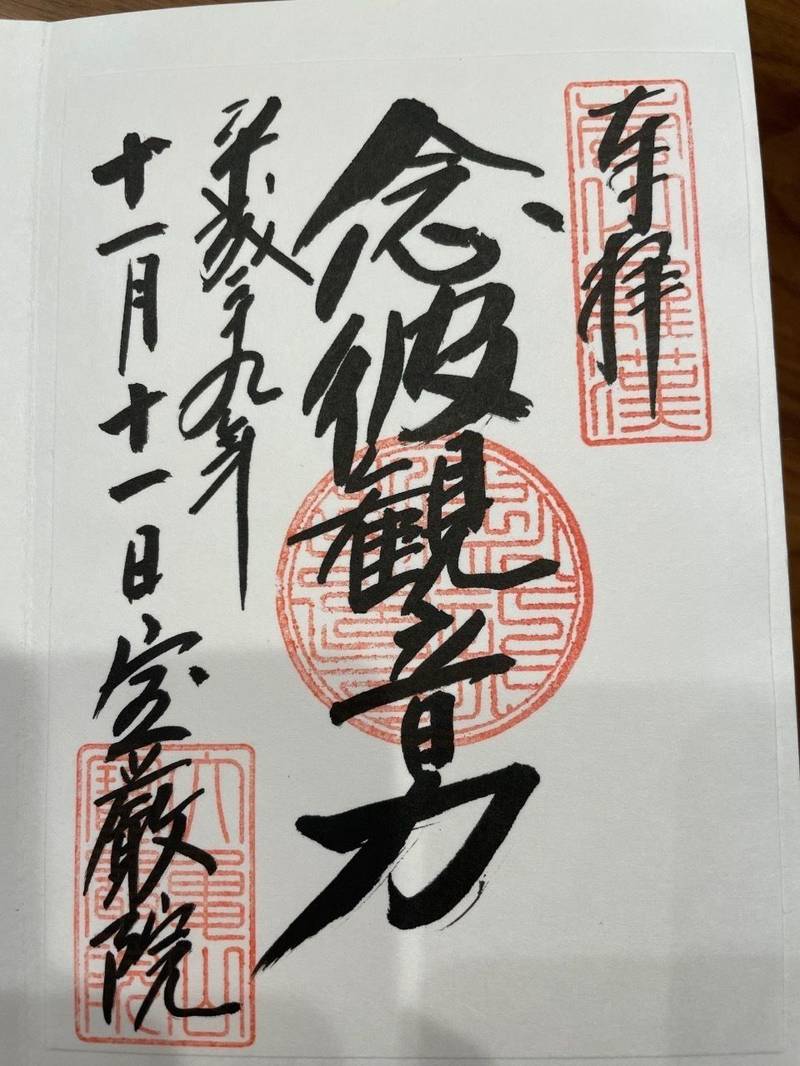 奉拝
念彼観音力
平成二十九年
十一月十一日 宝厳院